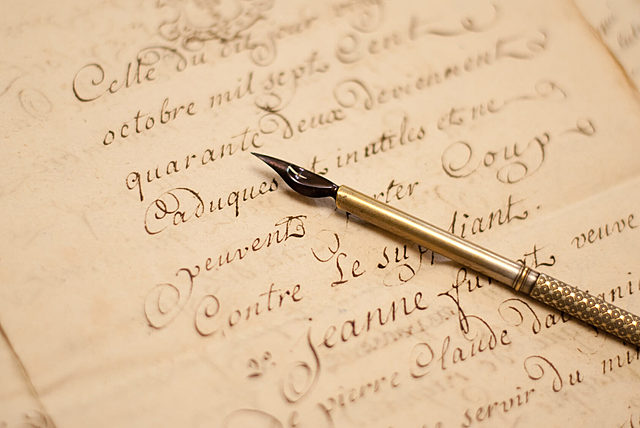 Celle du dit jour
octobre mil sept Cent
quarante deux deviennent
Caduques et inutiles et ne
peuvent porter Coup
Contre Le suppliant.
2º Jeanne veuve
de pierre Claude
servir du